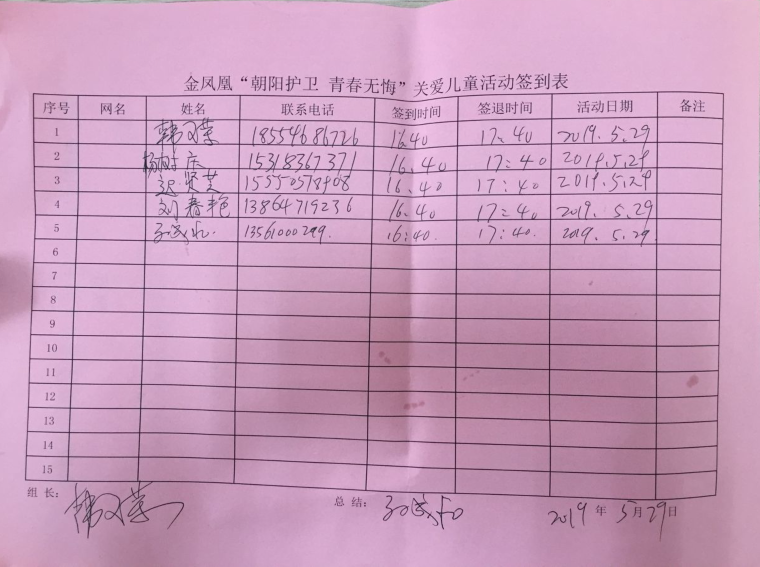 金凤凰“朝阳护卫 青春无悔”关爱儿童活动签到表
序号 网名 姓名 联系电话 签到时间 签退时间 活动日期 备注
1 韩又荣 18554686726 16.40 17.40 2019.5.29
2 杨树庆 15318367371 16.40 17:40 2019.5.29
3 迟贤芝 15550578908 16.40 17:40 2019.5.29
4 刘春艳 13864719236 16.40 17:40 2019.5.29
5 13561000299. 16:40. 17:40. 2019.5.29
6
7
8
9
10
11
12
13
14
15
组长: 韩又荣 总结: 2019 年 5 月 29 日